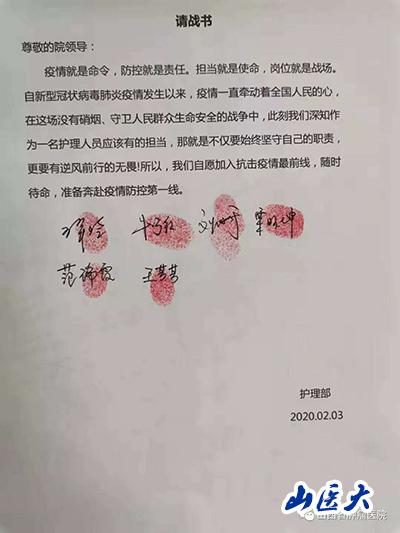 请战书
尊敬的院领导：
疫情就是命令，防控就是责任。担当就是使命，岗位就是战场。
自新型冠状病毒肺炎疫情发生以来，疫情一直牵动着全国人民的心，
在这场没有硝烟、守卫人民群众生命安全的战争中，此刻我们深知作
为一名护理人员应该有的担当，那就是不仅要始终坚守自己的职责，
更要有逆风前行的无畏!所以，我们自愿加入抗击疫情最前线，随时
待命，准备奔赴疫情防控第一线。
范瑞霞 王芳芳
护理部
2020.02.03
山医大